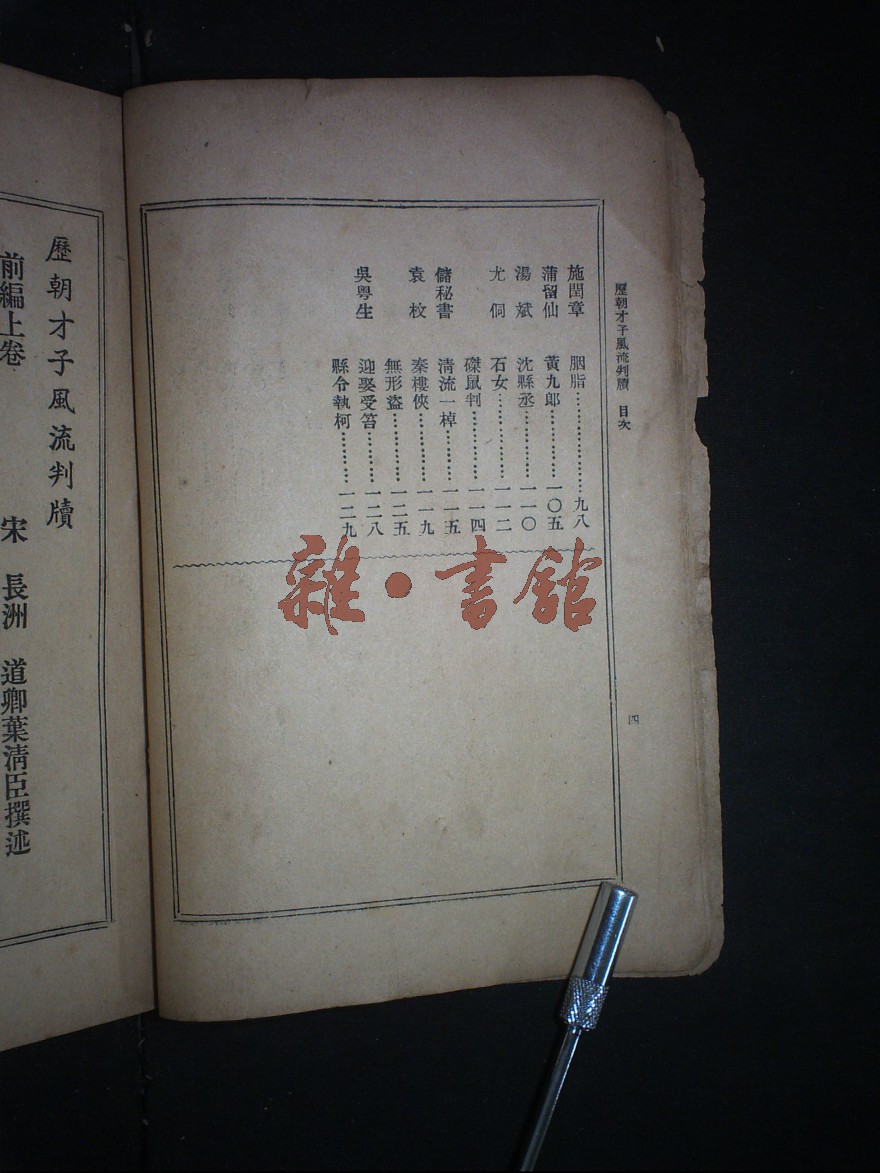 歷朝才子風流判牘　目次
四
施閏章　胭脂…………………九八
蒲留仙　黃九郎…………一〇五
湯　斌　沈縣丞…………一一〇
尤　侗　石女…………一一二
磔鼠判…………一一四
儲秘書　清流一棹…………一一五
袁　枚　秦樓俠…………一一九
無形盜…………一二五
吳粵生　迎娶受笞…………一二八
縣令執柯…………一二九
雜・書館
歷朝才子風流判牘
前編上卷　宋　長洲　道卿葉清臣撰述